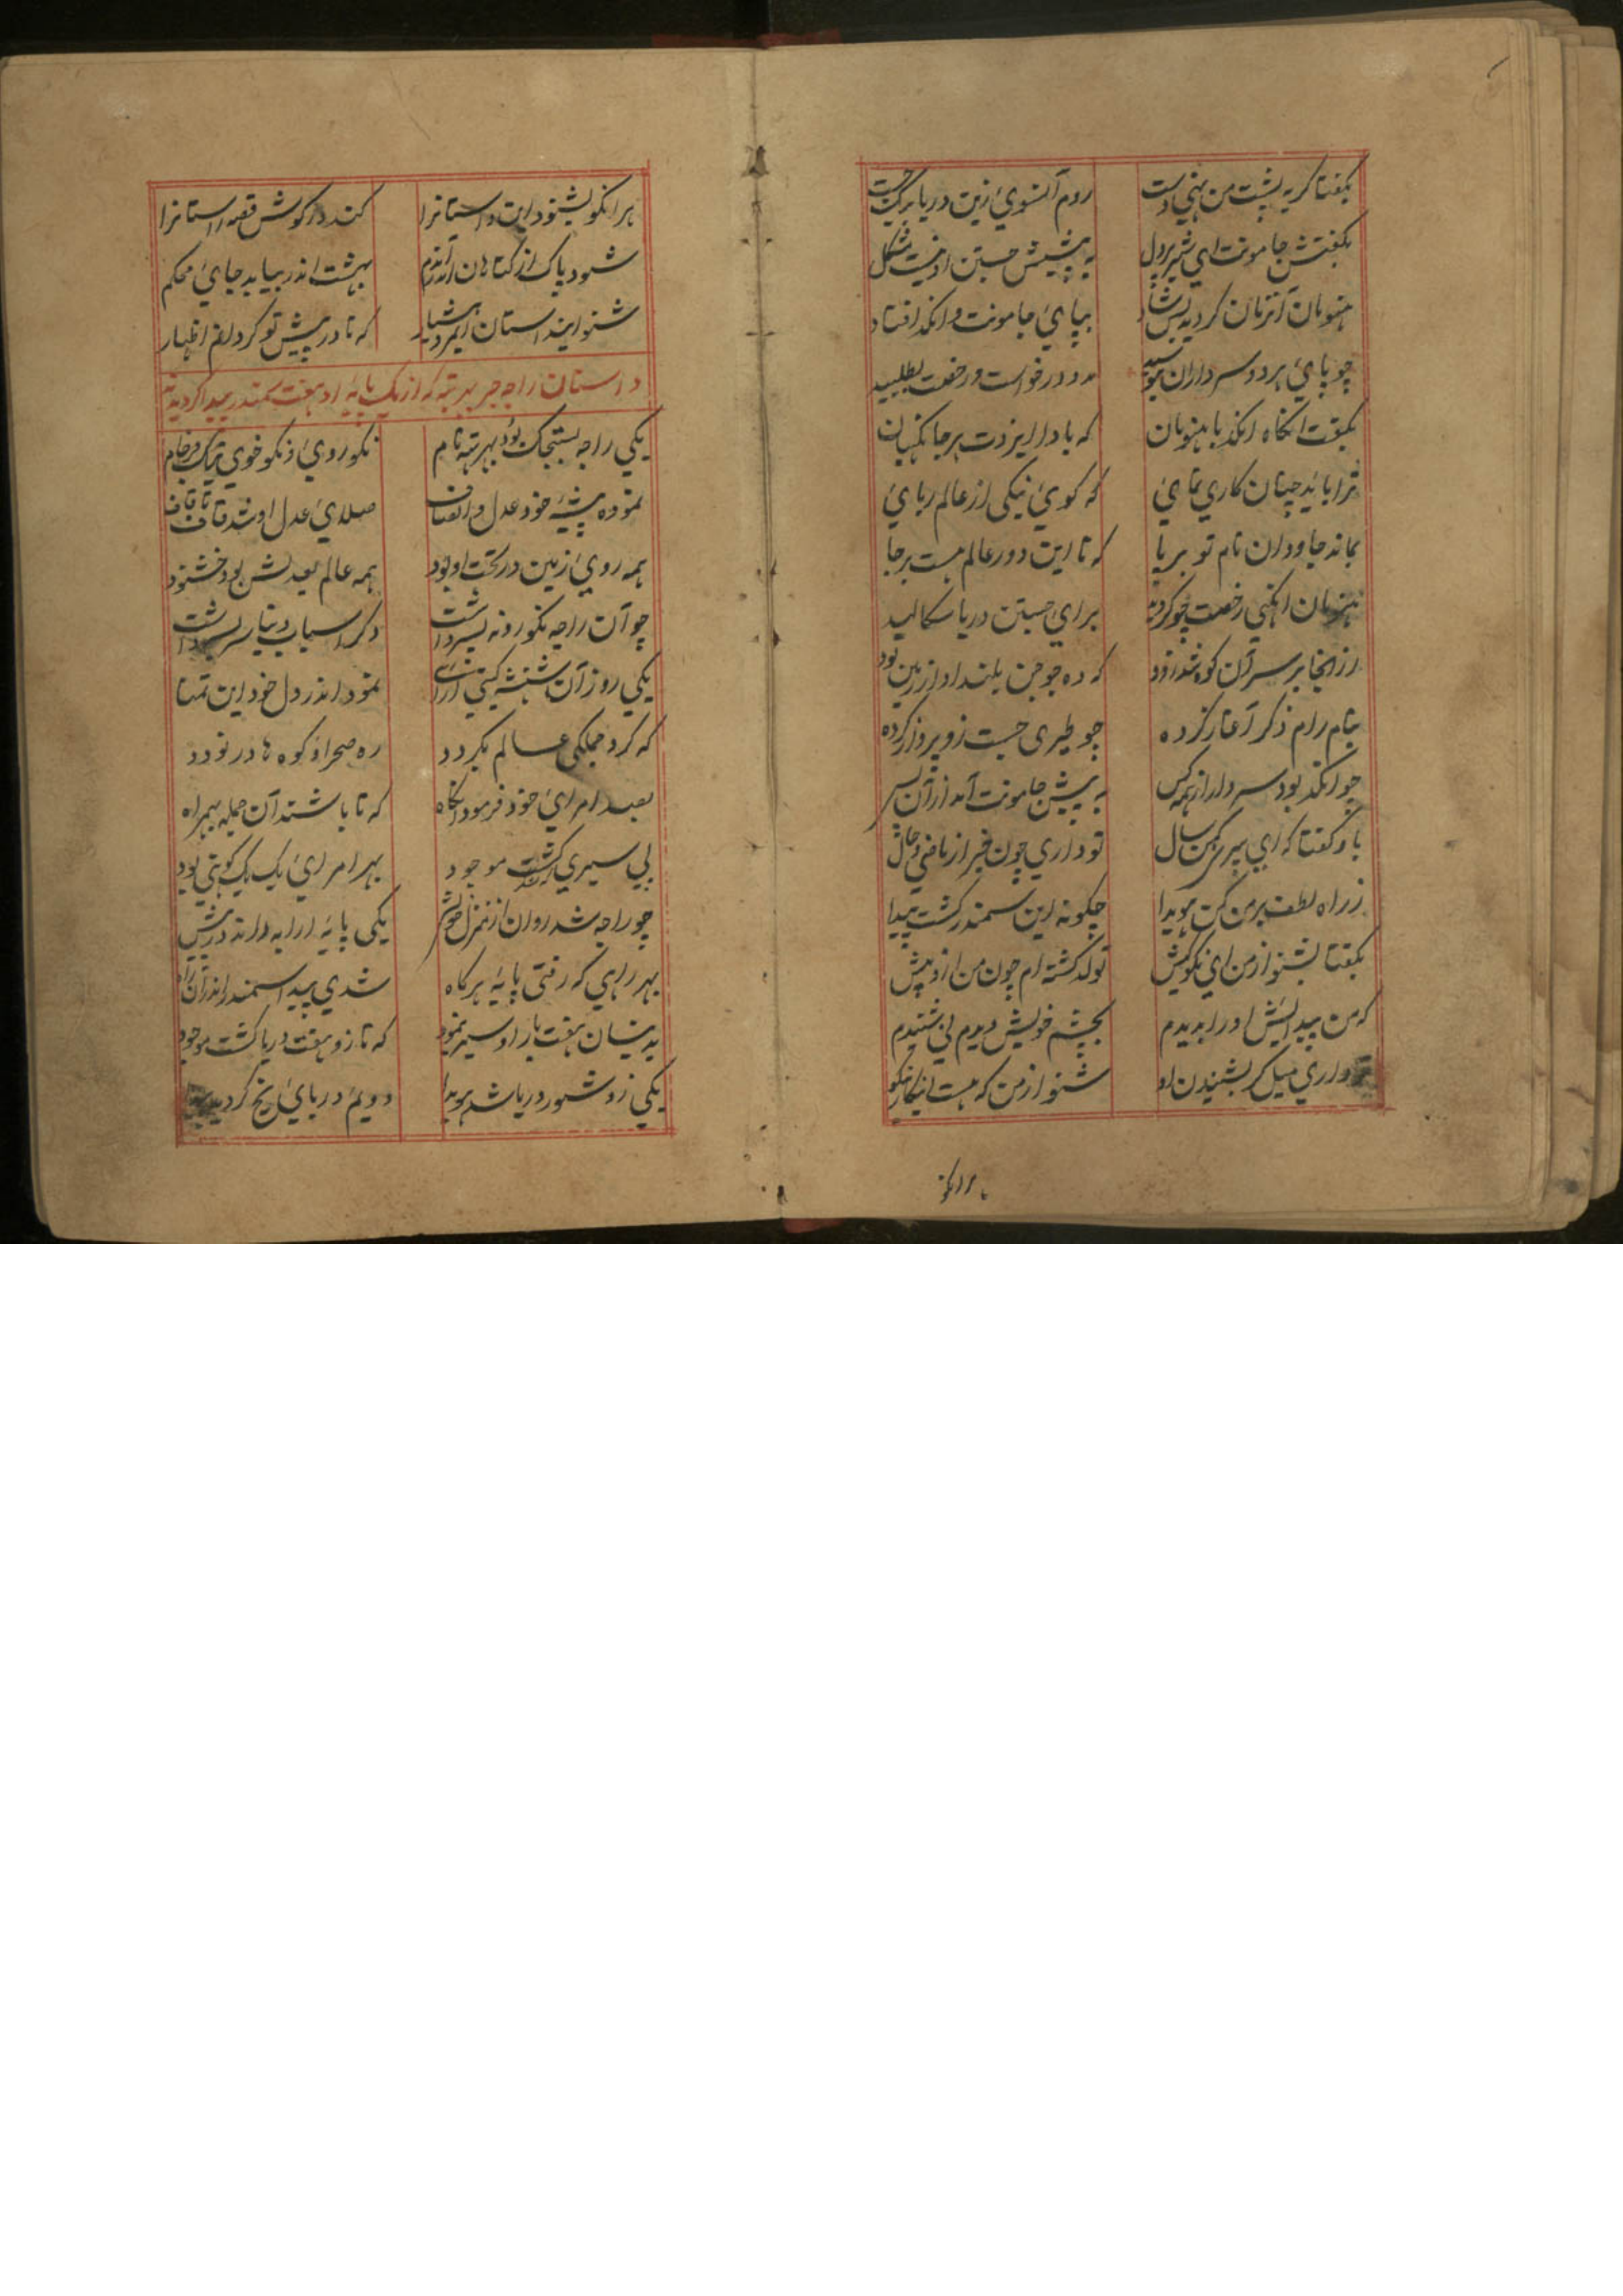 بگفتا گر به پشت من نهی دست روم آنسوی زین دریا بیک جست
بگفتش جامونت ای شیر پردل به پیشش جستن او نیست مشکل
هنومان آنزمان گردید بس شاد بپای جامونت و انگد افتاد
چو پای هر دو سرداران ببوسید مدد درخواست و رخصت بطلبید
بگفت انگاه انگد با هنومان که بادا ایزدت هر جا نگهبان
ترا باید چنان کاری نمای که گوی نیکی از عالم ربای
بماند جاودان نام تو برپا که تا این دور عالم هست برجا
هنومان انگهی رخصت چو گردید برای جستن دریا سکالید
از انجا بر سر آن کوه شد زود که ده جوجن بلند او از زمین بود
بنام رام ذکر آغاز کرده چو طیری جست زو پرواز کرده
چو انگد بود سردار از همه کس به پیش جامونت آمد ازآن پس
باو گفتا که ای پیر کهن سال تو داری چون خبر از ماضی و حال
ز راه لطف بر من کن هویدا چگونه این سمندر گشت پیدا
بگفتا بشنو از من ای نکو کیش تولد گشته ام چون من ازو پیش
که من پیدایش او را بدیدم بچشم خویش دیدم نی شنیدم
داری میل گر بشنیدن او شنو از من که هست
هر انکو بشنود این داستانرا کند در گوش قصه راستانرا
شود پاک از گناهان اندرآندم بهشت اندر بیابد جای محکم
شنو ایندستان ایمرد هشیار که تا در پیش تو کردانم اظهار
داستان راجه که از یک پایه او هفت سمندر پیدا گردیدند
یکی راجه بستجک بود نام نکو روی و نکو خوی و نیک فرجام
نموده پیشه خود عدل و انصاف صلای عدل او شد قاف تا قاف
همه روی زمین در تحت او بود همه عالم بعدلش بود خشنود
چو آن راجه پسر داشت دگر اسباب دنیا
یکی روز آن شهنشه گیتی آرای نمود اندر دل خود این تمنا
که گرد جملگی عالم بگردد ره صحرا و کوه ها در نوردد
بعد امرای خود فرمود انگاه که تا باشند آن جمله بهمراه
پی سیری گشت موجود بهر امرای یک یک بود
چو راجه شد روان از منزل خویش یکی پایه ارابه در پیش
بهر راهی که رفتی پایه هر گاه شدی پیدا سمندر اندر آن راه
بدینسان هفت بار او سیر نمود که تا زو هفت دریا گشت موجود
یکی زو شور دریا شد هویدا دویم دریای یخ گردید پیدا